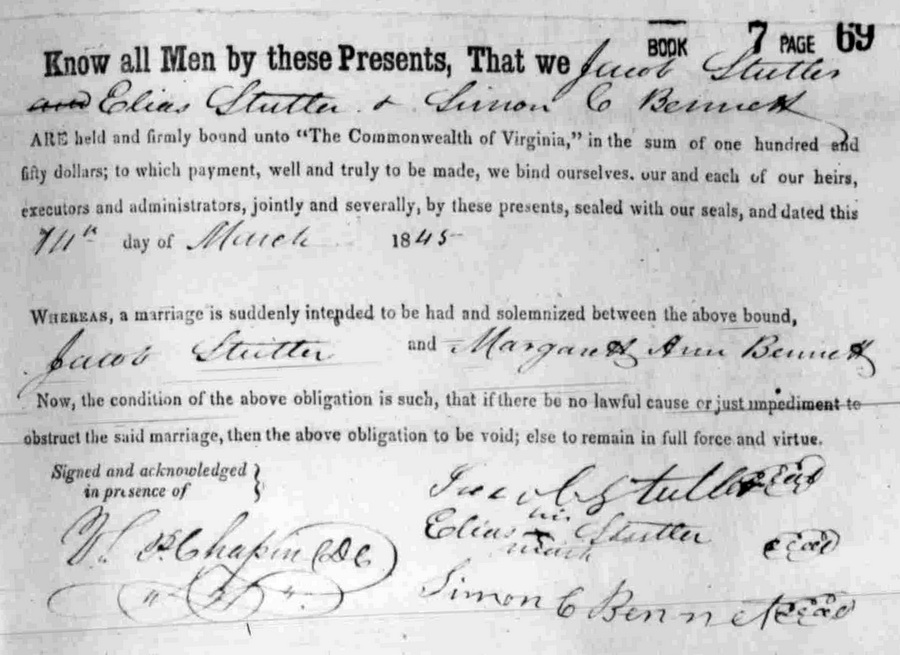 BOOK 7 PAGE 69
Know all Men by these Presents, That we Jacob Stutler
and Elias Stutler & Simon C Bennett
ARE held and firmly bound unto "The Commonwealth of Virginia," in the sum of one hundred and
fifty dollars; to which payment, well and truly to be made, we bind ourselves. our and each of our heirs,
executors and administrators, jointly and severally, by these presents, sealed with our seals, and dated this
day of March 1845
WHEREAS, a marriage is suddenly intended to be had and solemnized between the above bound,
Jacob Stutler and Margarett Ann Bennett
Now, the condition of the above obligation is such, that if there be no lawful cause or just impediment to
obstruct the said marriage, then the above obligation to be void; else to remain in full force and virtue.
Signed and acknowledged
in presence of
Jacob Stutler Seal
his
Elias x Stutler Seal
mark
Chapin
Simon C Bennett Seal